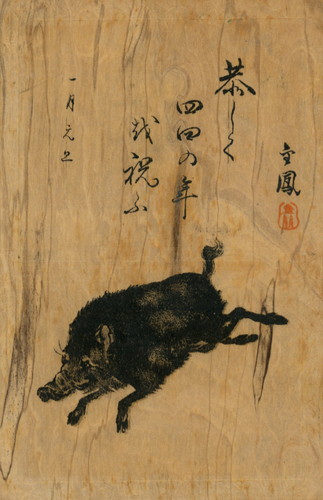 鳳
恭しく
四四の年
越祝ふ
一月元旦